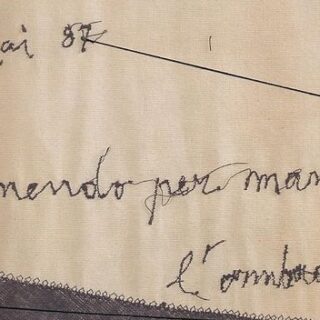 ai 87
nendo per man
l'ombra